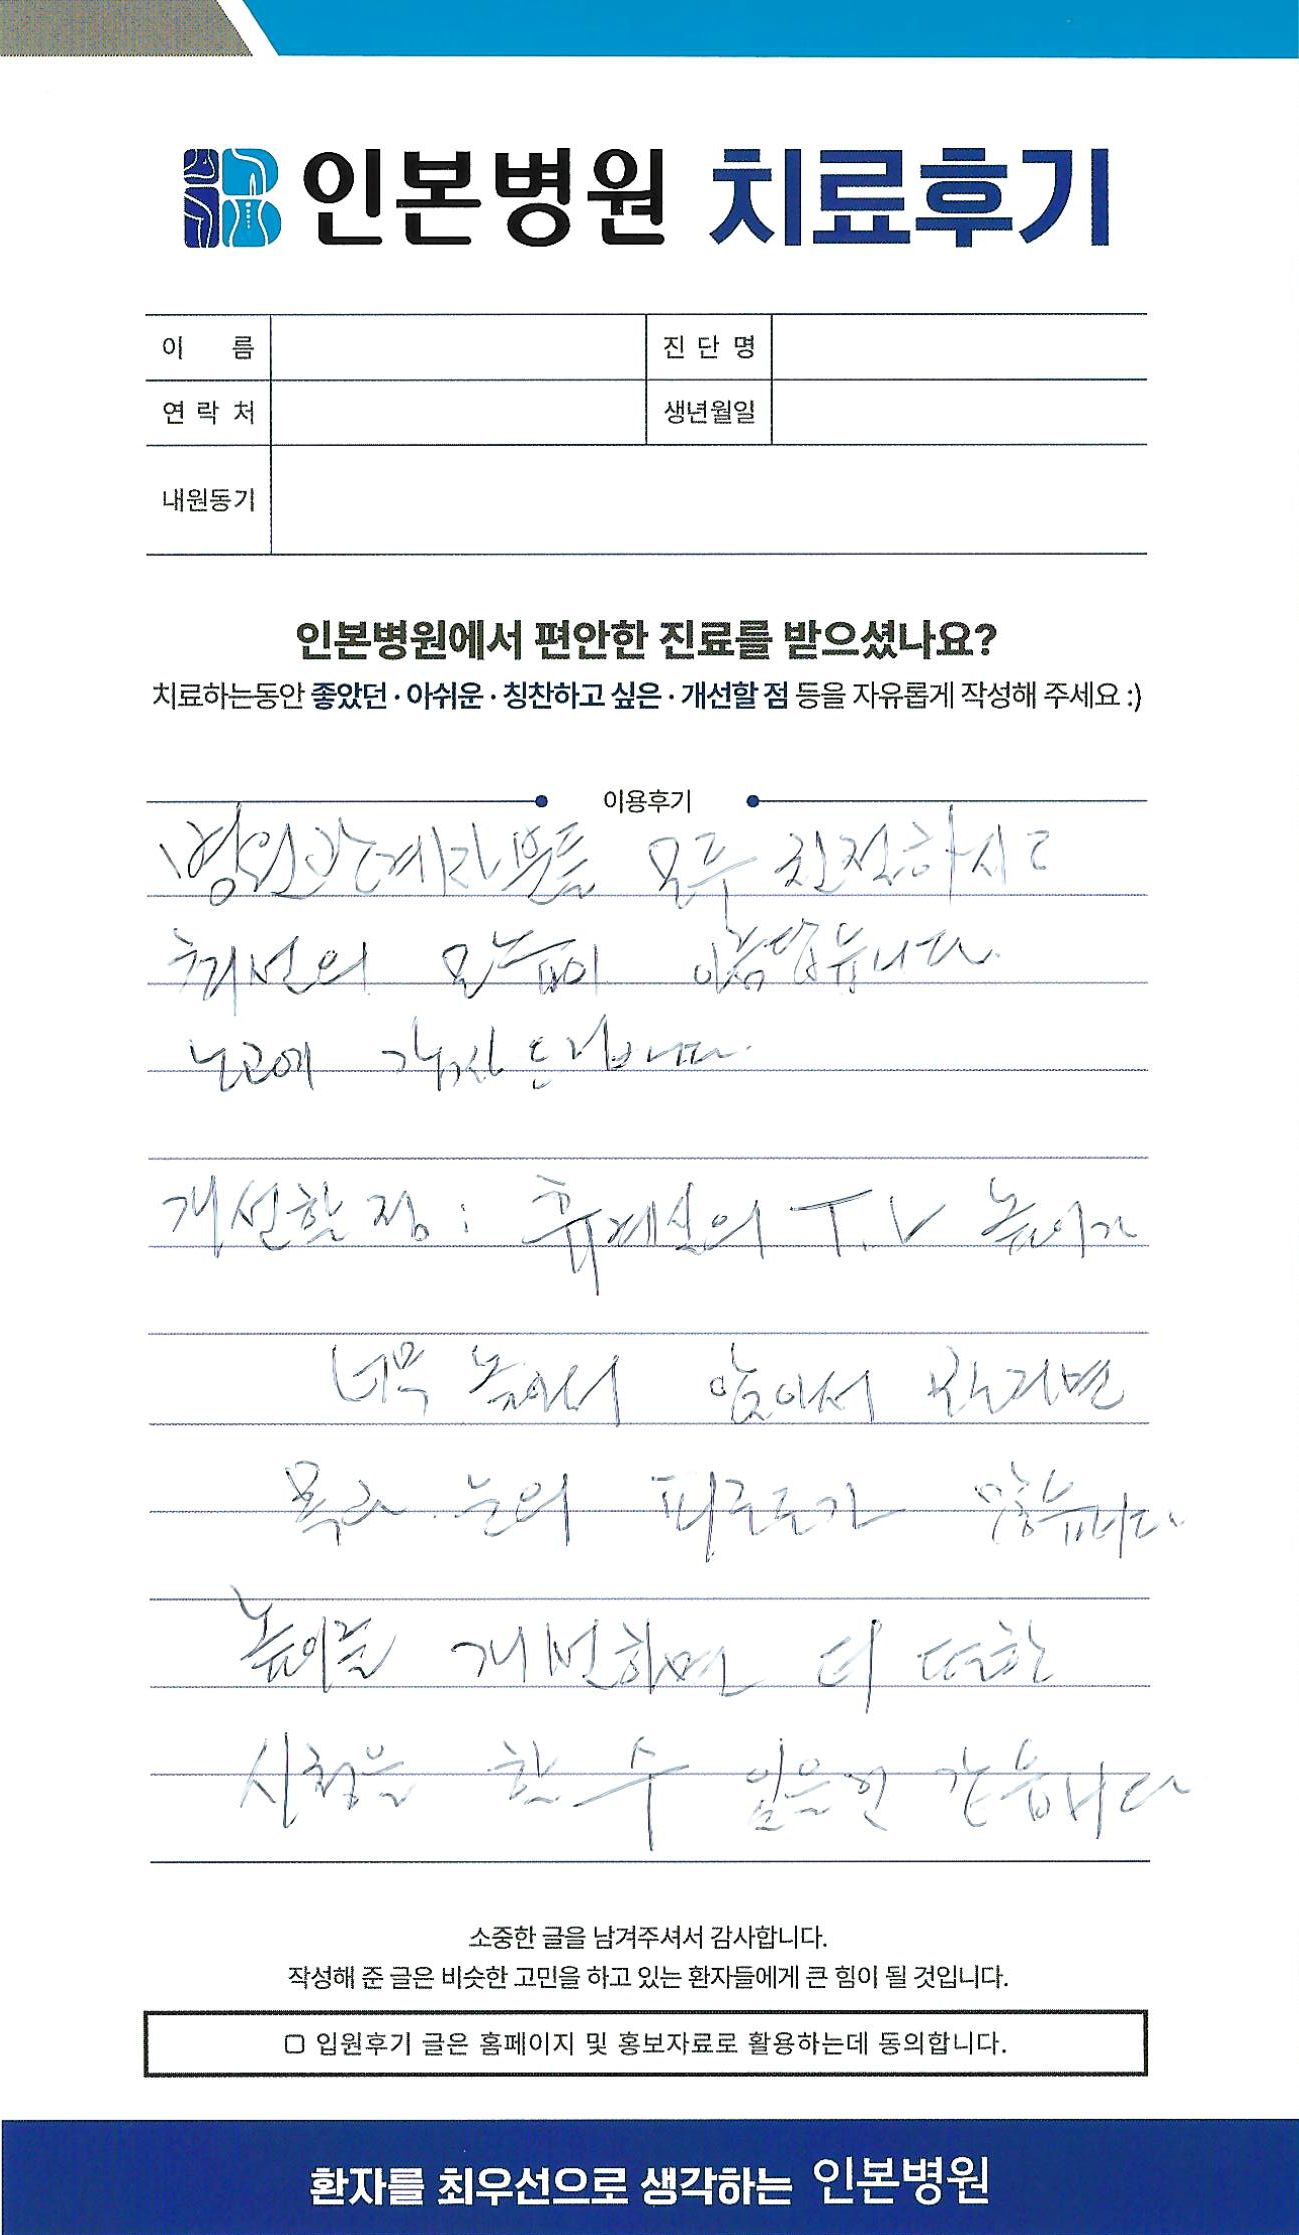 인본병원 치료후기
이 름 진 단 명
연 락 처 생년월일
내원동기
인본병원에서 편안한 진료를 받으셨나요?
치료하는동안 좋았던 · 아쉬운 · 칭찬하고 싶은 · 개선할 점 등을 자유롭게 작성해 주세요 :)
이용후기
병원관계자분들 모두 친절하시고
최선의 모습이 아름답습니다.
노고에 감사 드립니다.
개선할 점 : 휴게실의 T.V 높이가
너무 높아서 앉아서 보려면
목과 눈의 피로도가 많습니다
높이를 개선하면 더 또한
시청을 할 수 있을 것 같습니다
소중한 글을 남겨주셔서 감사합니다.
작성해 준 글은 비슷한 고민을 하고 있는 환자들에게 큰 힘이 될 것입니다.
□ 입원후기 글은 홈페이지 및 홍보자료로 활용하는데 동의합니다.
환자를 최우선으로 생각하는 인본병원